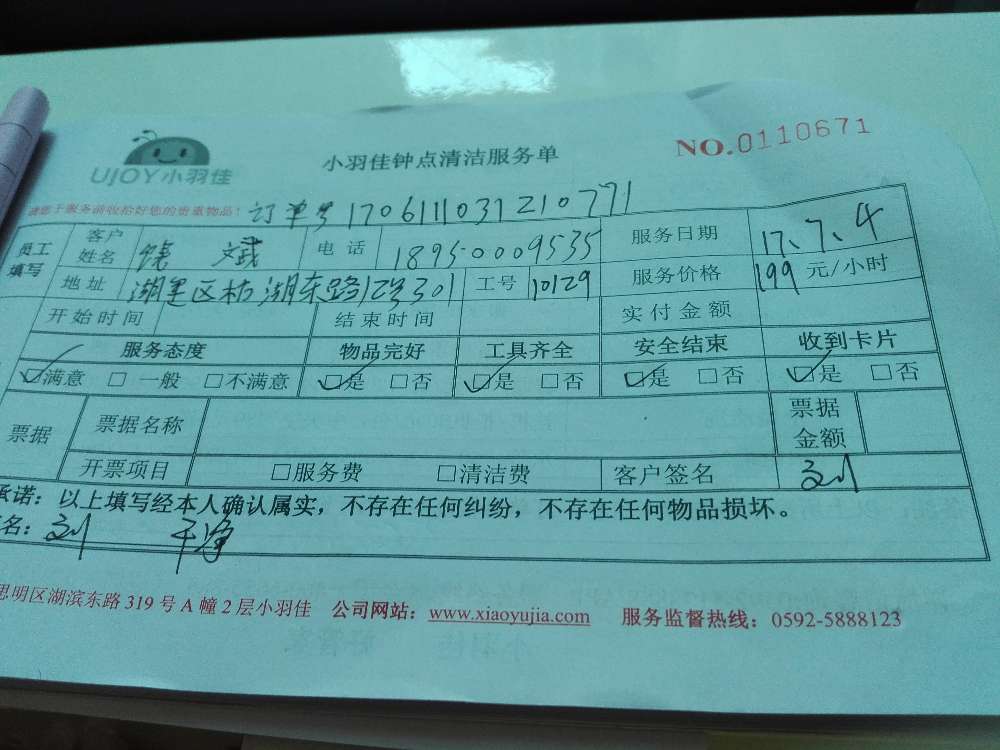 UJOY小羽佳
小羽佳钟点清洁服务单
NO.0110671
请您于服务前收拾好您的贵重物品! 订单号17061110371210771
员工填写 客户姓名 斌 电话 18950009535 服务日期 17、7、4
地址 湖里区 湖东路12号301 工号 10129 服务价格 199 元/小时
开始时间 结束时间 实付金额
服务态度 物品完好 工具齐全 安全结束 收到卡片
☑满意 □一般 □不满意 ☑是 □否 ☑是 □否 ☑是 □否 ☑是 □否
票据 票据名称 票据金额
开票项目 □服务费 □清洁费 客户签名 刘
承诺：以上填写经本人确认属实，不存在任何纠纷，不存在任何物品损坏。
名：刘 干净
思明区湖滨东路319号A幢2层小羽佳 公司网站：www.xiaoyujia.com 服务监督热线：0592-5888123